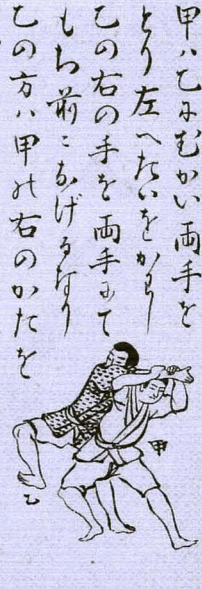 甲ハ乙にむかい両手を
とり左へたいをかわし
乙の右の手を両手にて
もち前こなげるなり
乙の方ハ甲の右のかたを
甲
乙